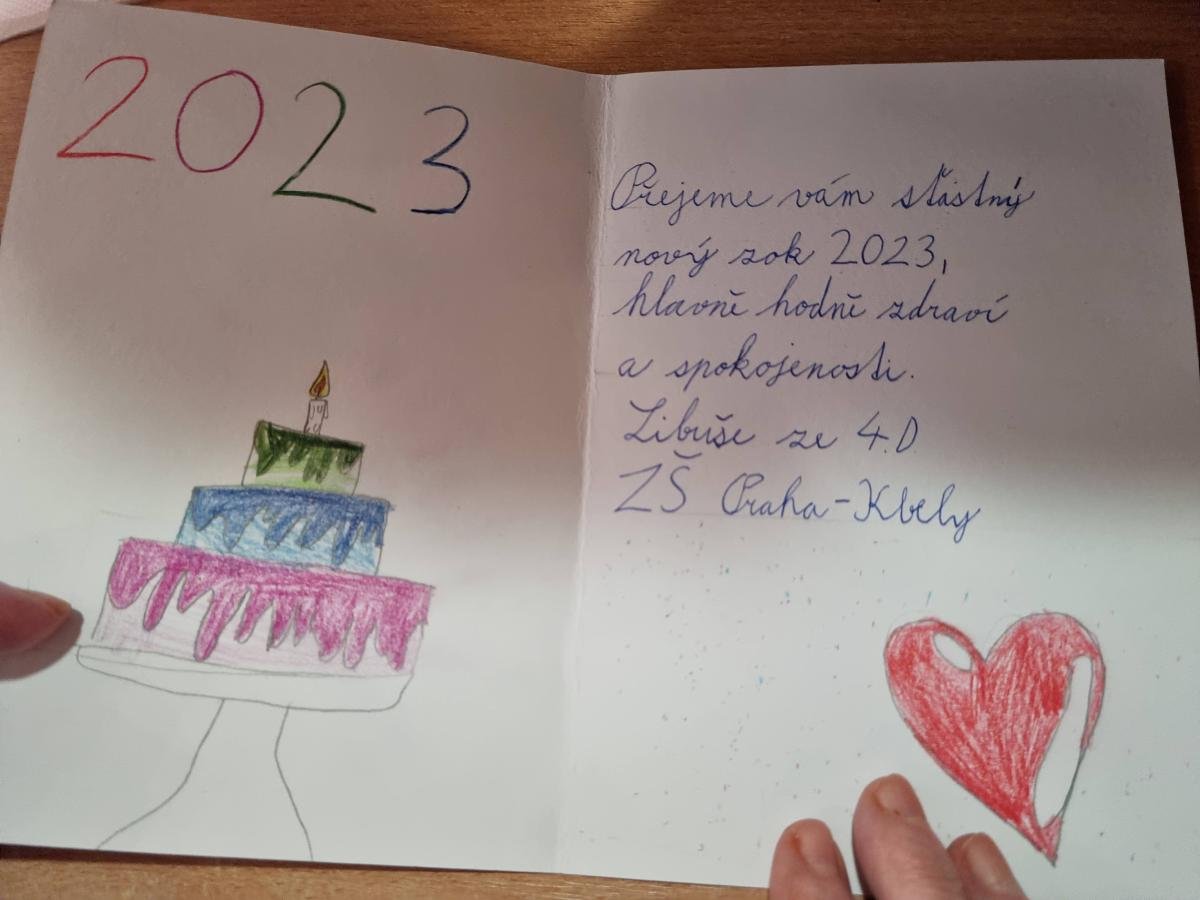 2023
Přejeme vám sťastný
nový rok 2023,
hlavně hodně zdraví
a spokojenosti.
Libuše ze 4.D
ZŠ Praha-Kbely